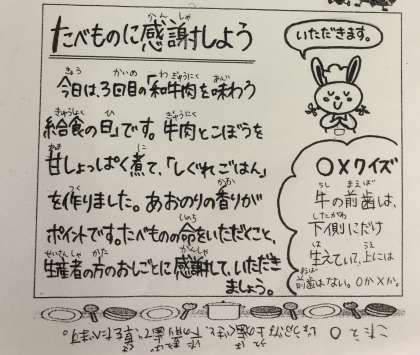 たべものに感謝しよう
今日は、3回目の「和牛肉を味わう
給食の日」です。牛肉とごぼうを
甘しょっぱく煮て、「しぐれごはん」
を作りました。あおのりの香りが
ポイントです。たべものの命をいただくこと、
生産者の方のおしごとに感謝して、いただき
ましょう。
いただきます。
○×クイズ
牛の前歯は、
下側にだけ
生えていて、上には
前歯はない。○か×か。
こたえ ○